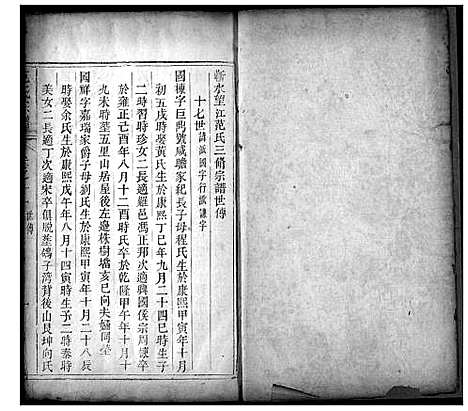 蘄水望江范氏三脩宗譜世傳
十七世講派國字行派謙字
國棟字巨㟳號咸瞻家紀長子母程氏生於康熙甲寅年十月
初五戌時娶黃氏生於康熙丁巳年九月二十四巳時生子
二時習時珍女二長適羅邑馮正邦次適興國侯宗周壞卒
於雍正己酉年八月十二酉時氏卒於乾隆甲午年十月十
九未時墓五里山居屋後左邊株樹墩亥巳向夫婦同塋
國鮮字嘉瑞家爵子母劉氏生於康熙甲寅年十月二十八辰
時娶余氏生於康熙戊午年八月十四寅時生子二時泰時
美女二長適丁次適宋卒俱脫塟鴿子湾背後山艮坤向氏
世傳